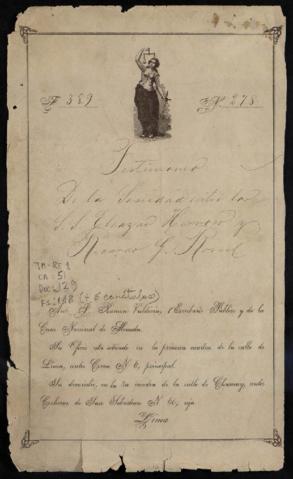 F. 389 Nº 278
Testimonio
De la Sociedad entre los
S.S. Eleazar Herrera y
Ricardo G.
TM-RE 1
CA: 51
DOC: 129
Fs: 188 (+ 6 carátulas)
Ante D. Ramon Valdivia, Escribano Público y de la
Casa Nacional de Moneda.
Su oficio está situado en la primera cuadra de la calle de
Lima, antes Correo N. 6, principal.
Su domicilio, en la 3a cuadra de la calle de Chancay, antes
de San Sebastian N. 60, reja.
Lima